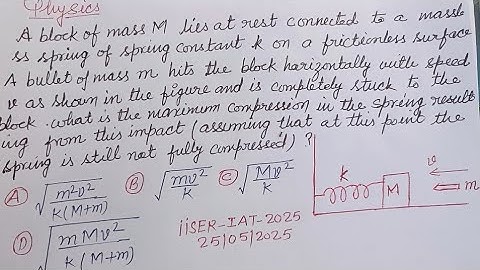 Physics
A block of mass M lies at rest connected to a massle
ss spring of spring constant k on a frictionless surface
A bullet of mass m hits the block harizontally with speed
v as shown in the figure and is completely stuck to the
block. what is the maximum compression in the spring result
ing from this impact (assuming that at this point the
spring is still not fully compressed) ?
Ⓐ √(m²v²/k(M+m)) Ⓑ √(mv²/k) Ⓒ √(Mv²/k)
Ⓓ √(mMv²/k(M+m))
IISER-IAT-2025
25/05/2025
k M v m